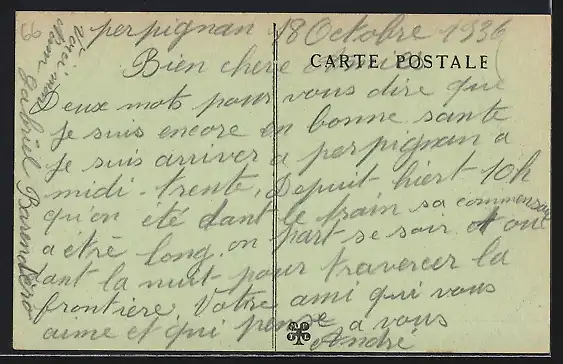 66
perpignan 18 Octobre 1936
CARTE POSTALE
Bien chere
Deux mots pour vous dire que
Je suis encore en bonne sante
Je suis arriver a perpignan a
midi-trente, Depuit hiert 10h
qu'on été dant le train sa commensai
a être long. on part se soir et ont
ant la nuit pour traverser la
frontiere. Votre ami qui vous
aime et qui pense a vous
Andre
Voici mon
Nom Gabriel